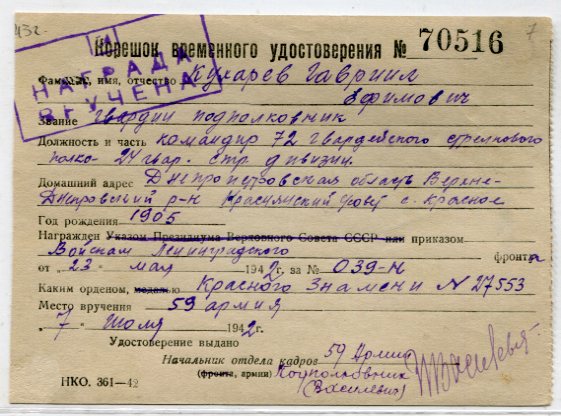 43г. 7
Корешок временного удостоверения № 70516
НАГРАДА
ВРУЧЕНА
Фамилия, имя, отчество Кухарев Гавриил
Ефимович
Звание Гвардии подполковник
Должность и часть командир 72 гвардейского стрелкового
полка - 24 гвар. стр дивизии.
Домашний адрес Днепропетровская область Верхне-
Днепровский р-н с. Красное
Год рождения 1905
Награжден Указом Президиума Верховного Совета СССР или приказом
Войскам Ленинградского фронта
от „23" мая 1942г. за № 039-н
Каким орденом, медалью Красного Знамени N 27553
Место вручения 59 армия
„7" июля 1942г.
Удостоверение выдано
Начальник отдела кадров 59 Армии
(фронта, армии) Подполковник
(Василевич)
НКО. 361—42